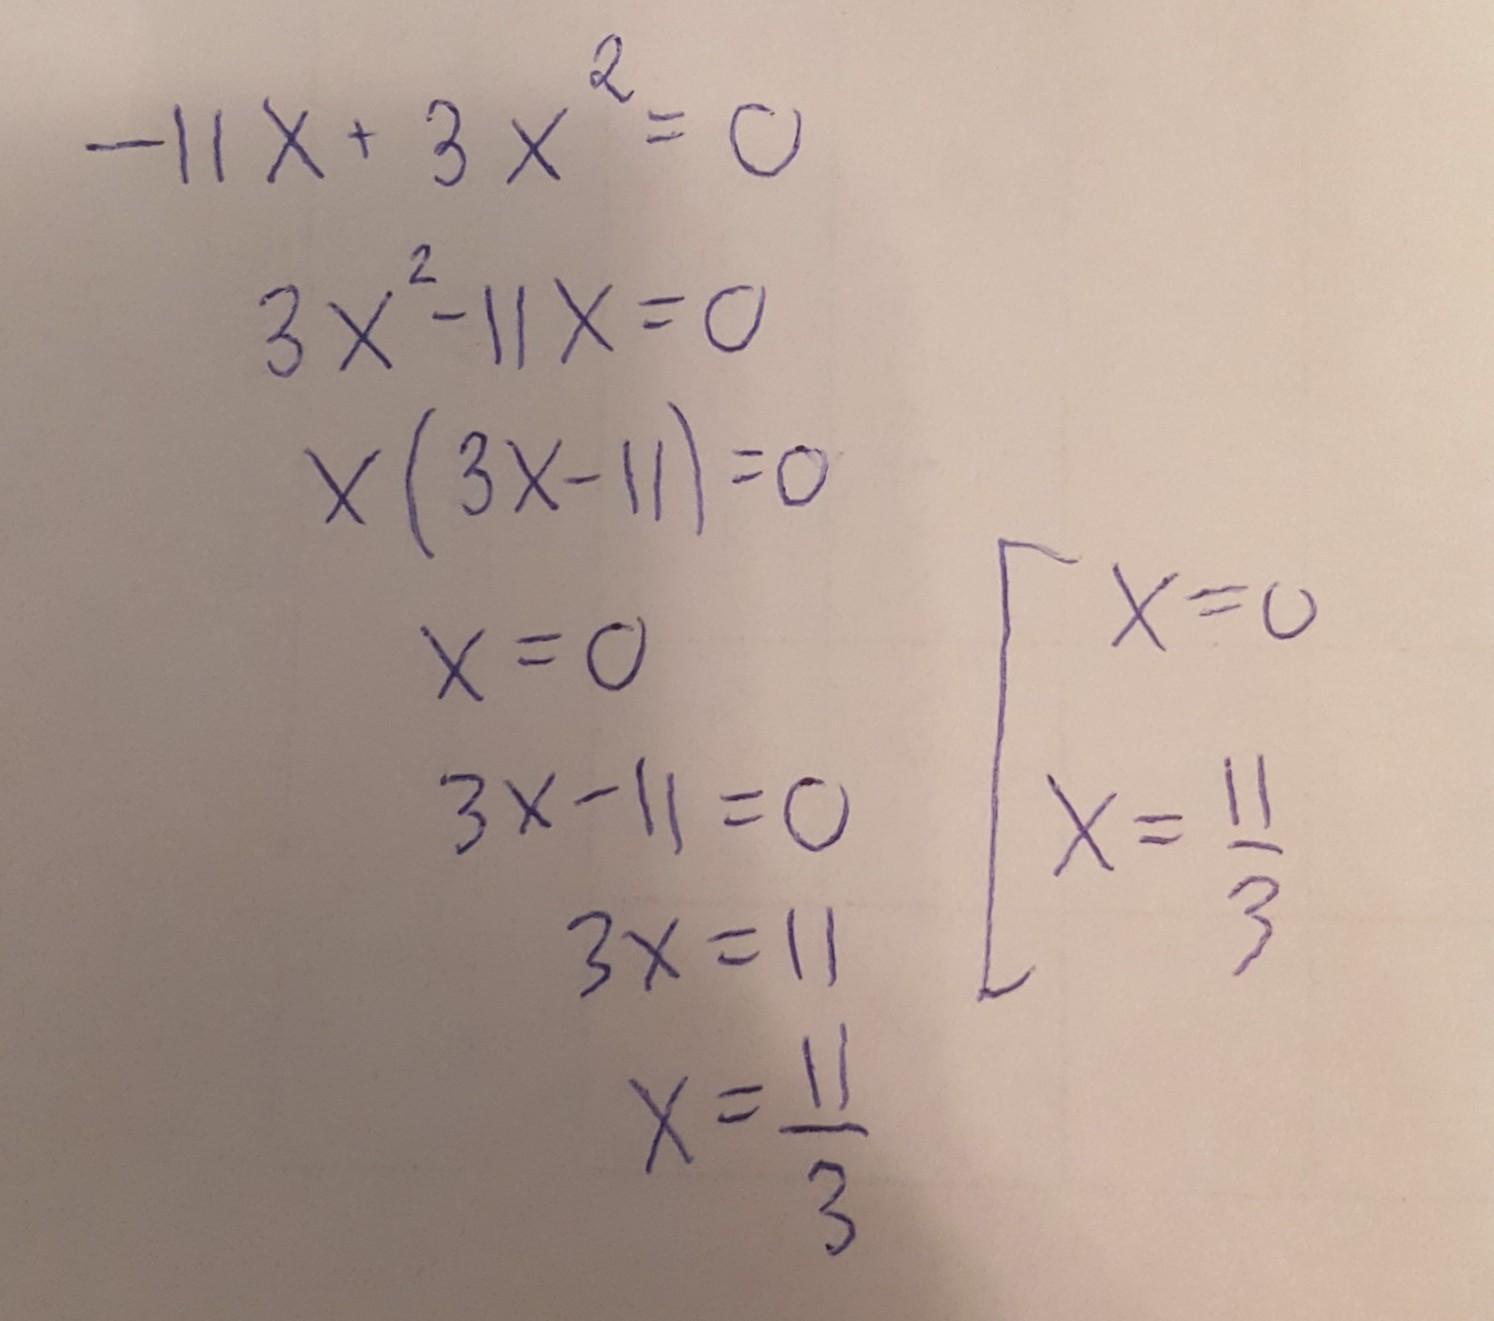 -11x + 3x² = 0
3x² - 11x = 0
x(3x - 11) = 0
x = 0
3x - 11 = 0
3x = 11
x = 11/3
[ x = 0
x = 11/3